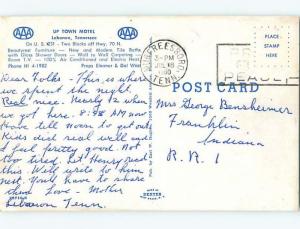 AAA
UP TOWN MOTEL
Lebanon, Tennessee
AAA
On U. S. 231 - Two Blocks off Hwy. 70 N.
Beautyrest Furniture - New and Modern Tile Baths
with Glass Shower Doors - Wall to Wall Carpeting -
Room T.V. - 100% Air Conditioned and Electric Heat
Phone HI 4-1982
MURFREESBORO
3-PM
JUL 18
TENN.
PLACE
STAMP
HERE
POST CARD
Dear Folks - This is where
we spent the night.
Real nice. Nearly 12 when
we got here. 8:30 AM now
& have already been out.
Kids did real well and
I feel pretty good. Not
too tired. Let Henry read
this. Will write to him
next. You'll have to share
them Love - Mother
Lebanon Tenn.
Mrs George Bensheimer
Franklin,
Indiana
R.R. 1
DEXTER